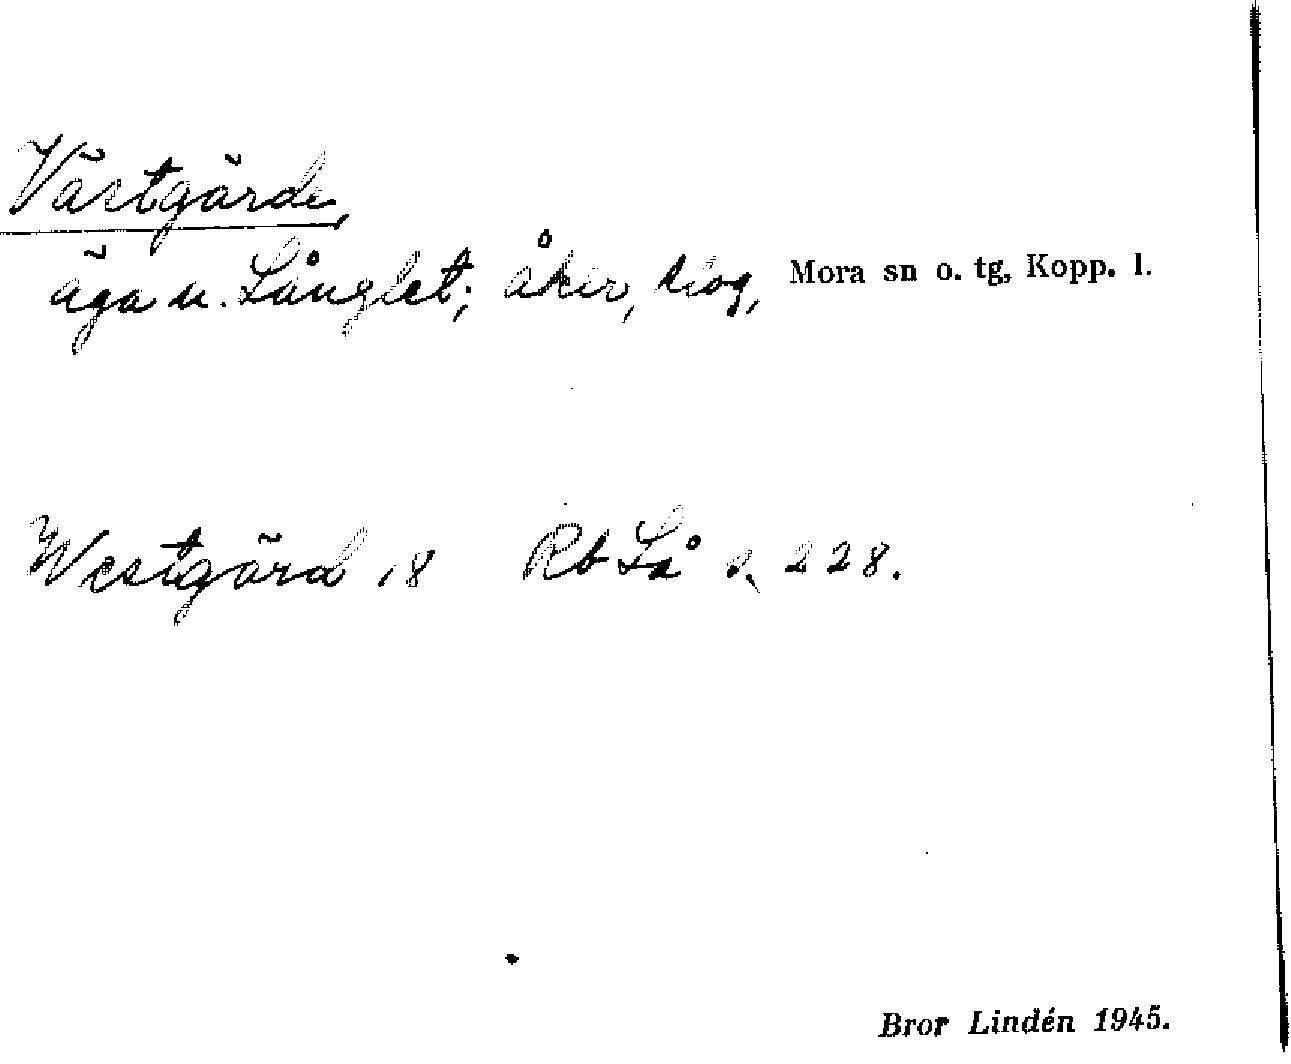 Västgärde,
äga u. Långlet; åker, skog, Mora sn o. tg, Kopp. l.
Westgärd 18 Rb Lå s. 228.
Bror Lindén 1945.